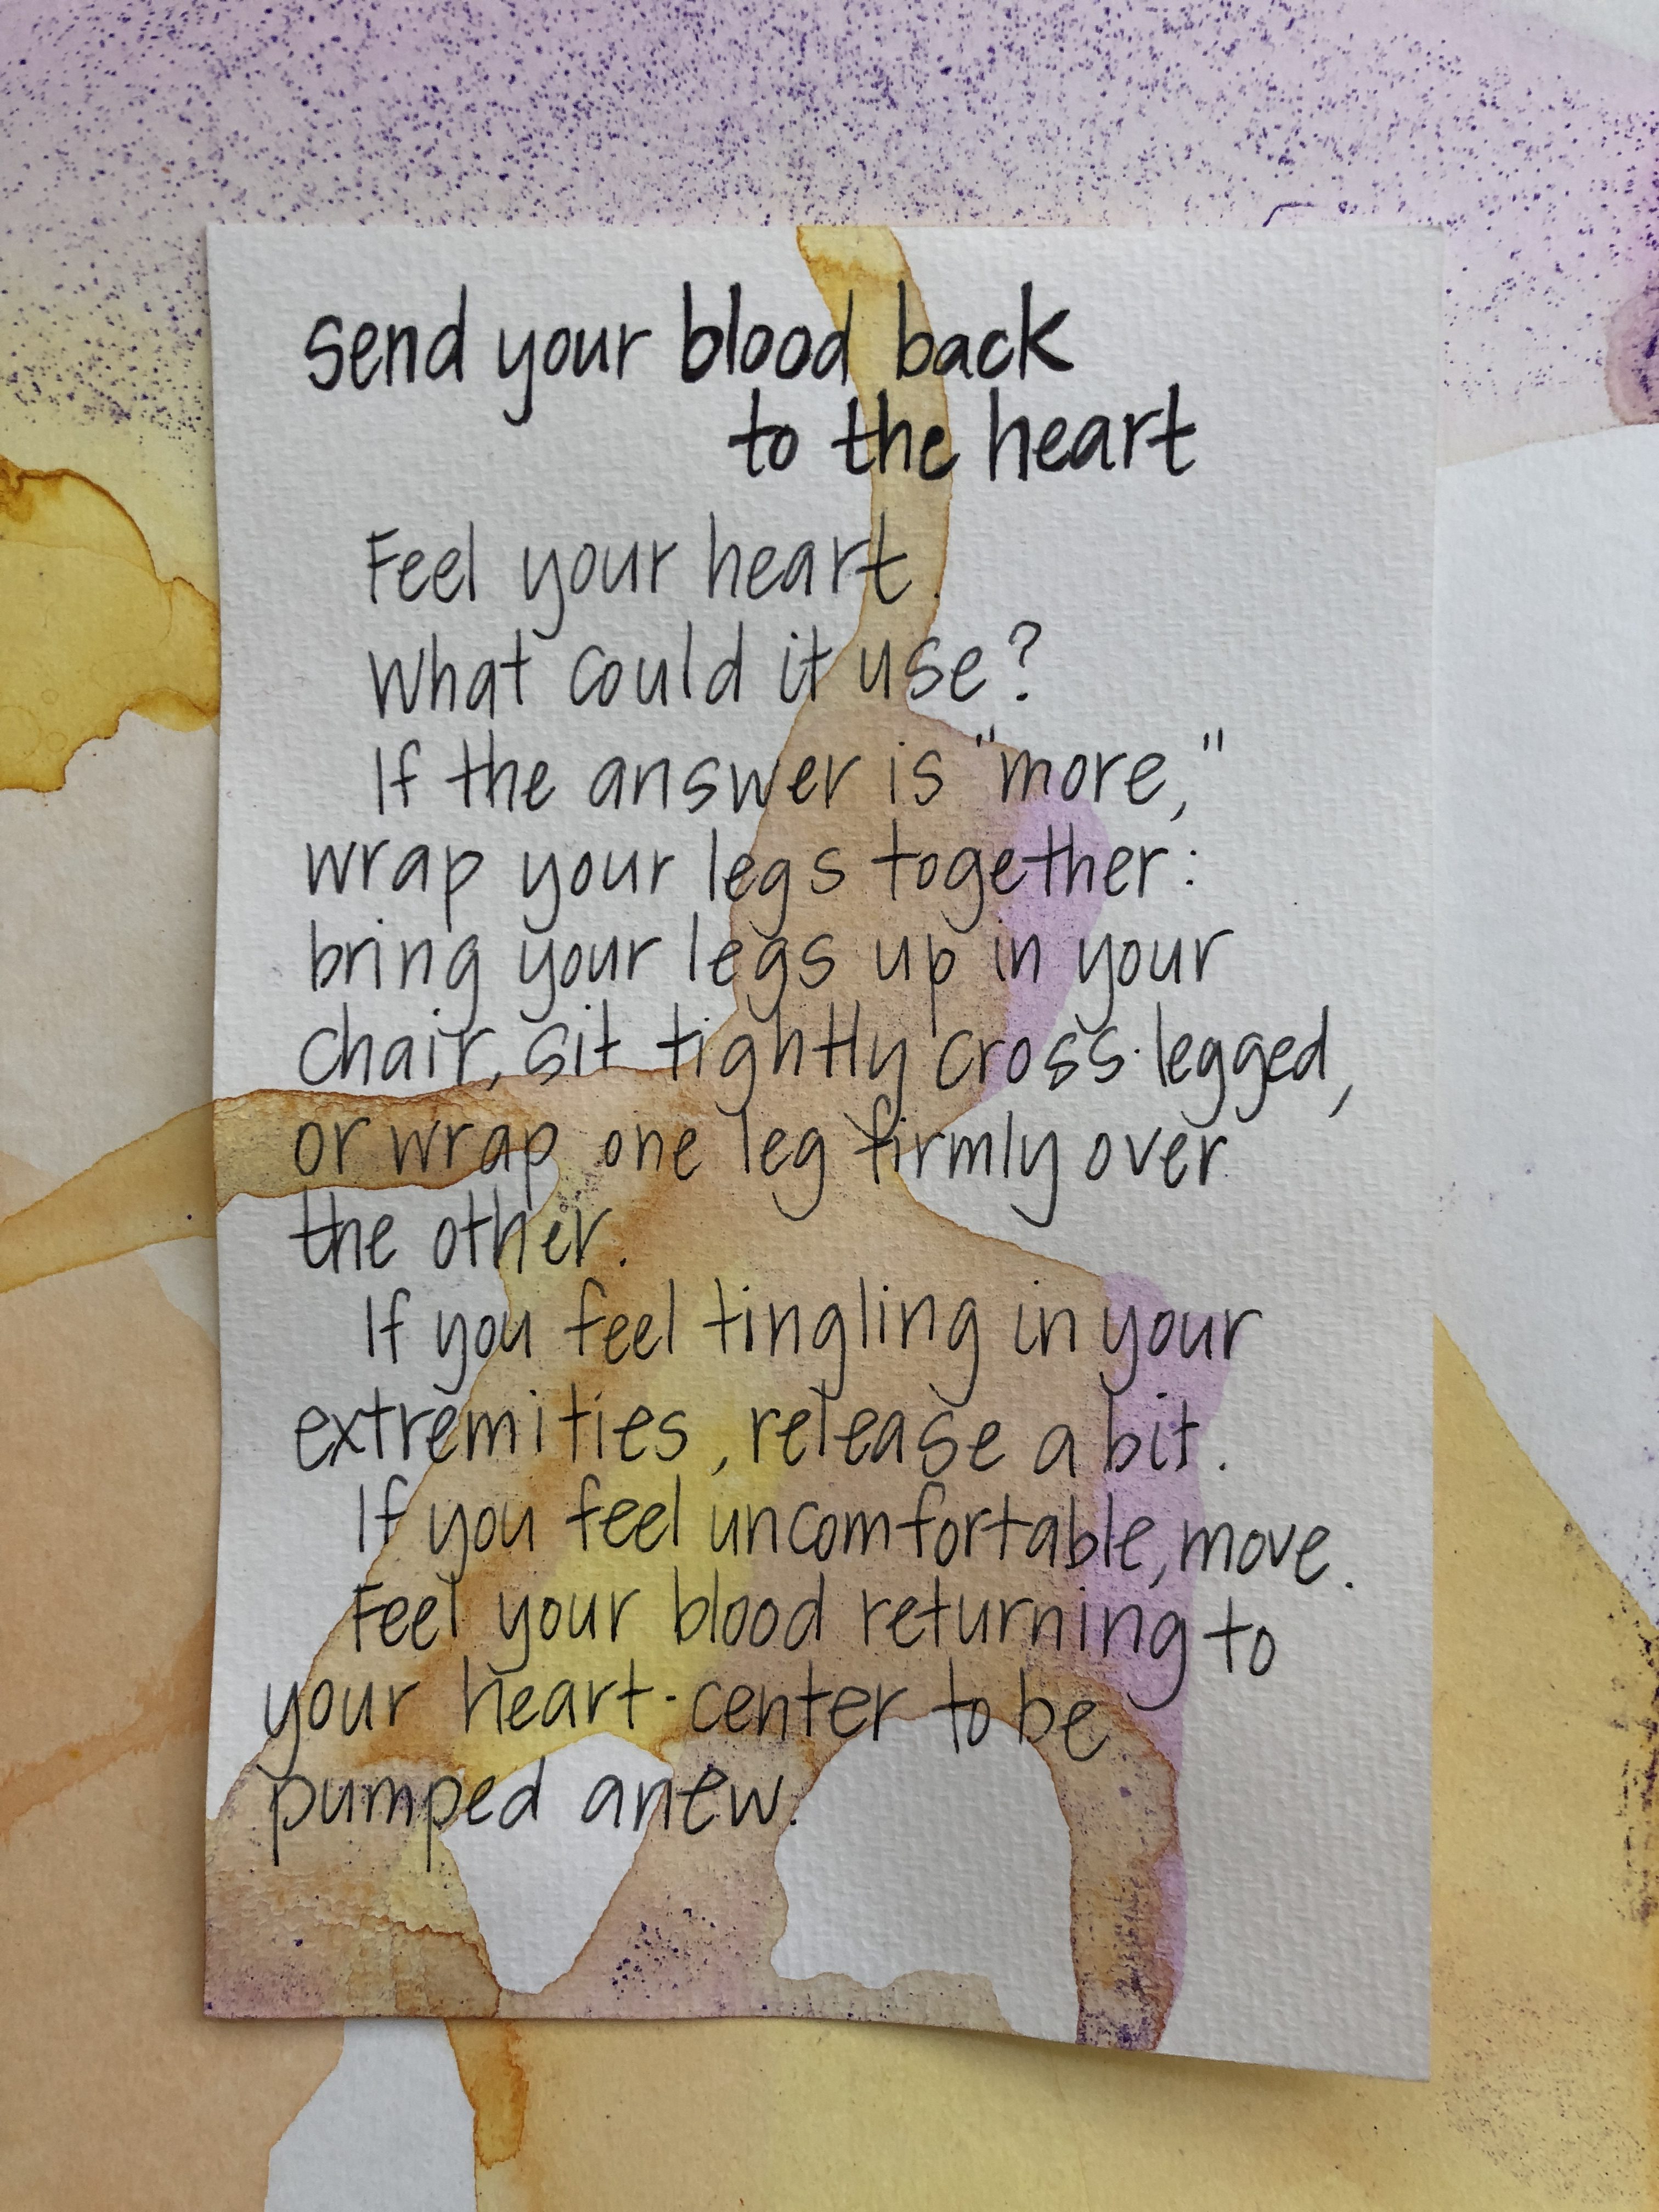 send your blood back
to the heart
Feel your heart.
What could it use?
If the answer is "more,"
wrap your legs together:
bring your legs up in your
chair, sit tightly cross-legged,
or wrap one leg firmly over
the other.
If you feel tingling in your
extremities, release a bit.
If you feel uncomfortable, move.
Feel your blood returning to
your heart-center to be
pumped anew.